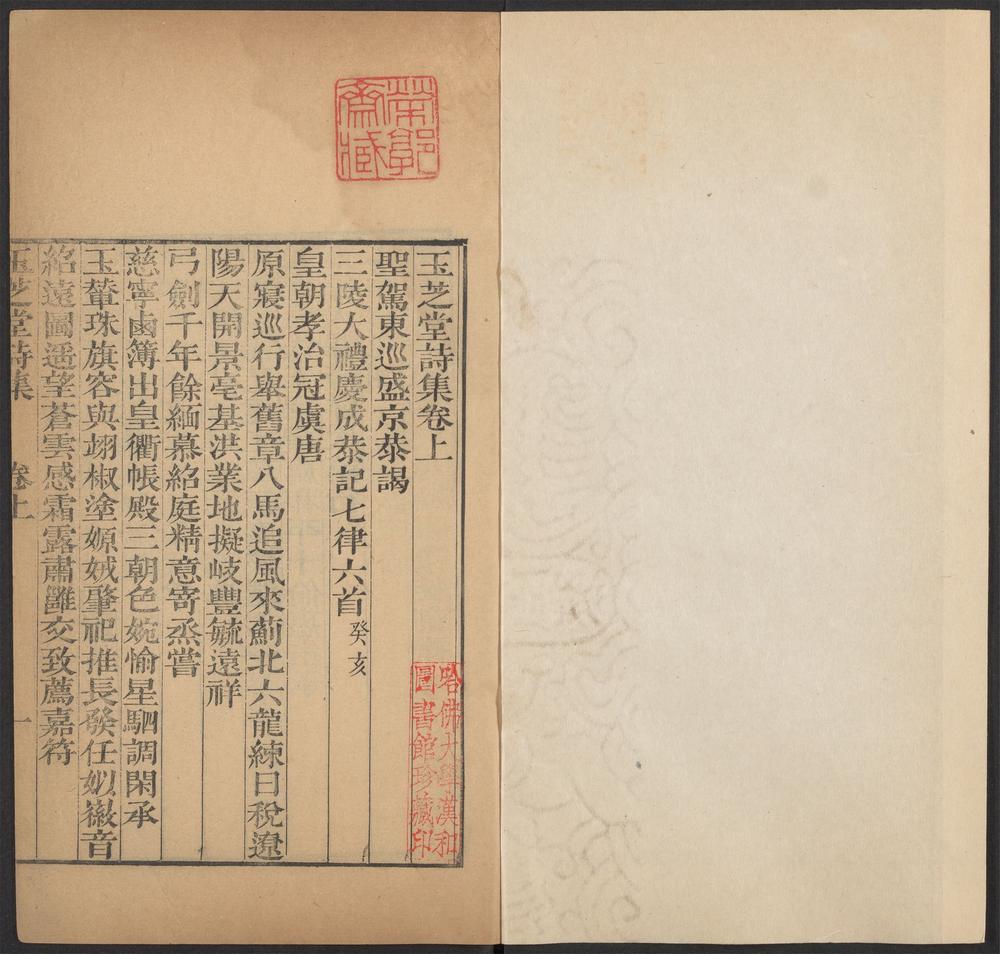 玉芝堂詩集卷上
聖駕東巡盛京恭謁
三陵大禮慶成恭記七律六首癸亥
皇朝孝治冠虞唐
原寢巡行舉舊章八馬追風來薊北六龍練日稅遼
陽天開景亳基洪業地擬岐豐毓遠祥
弓劍千年餘緬慕紹庭精意寄烝嘗
慈寧鹵簿出皇衢帳殿三朝色婉愉星駟調閑承
玉輦珠旗容與翊椒塗嫄娀肇祀推長發任姒徽音
紹遠圖遥望蒼雲感霜露肅雝交致薦嘉符
玉芝堂詩集 卷上 一
哈佛大學漢和
圖書館珍藏印
齋藏